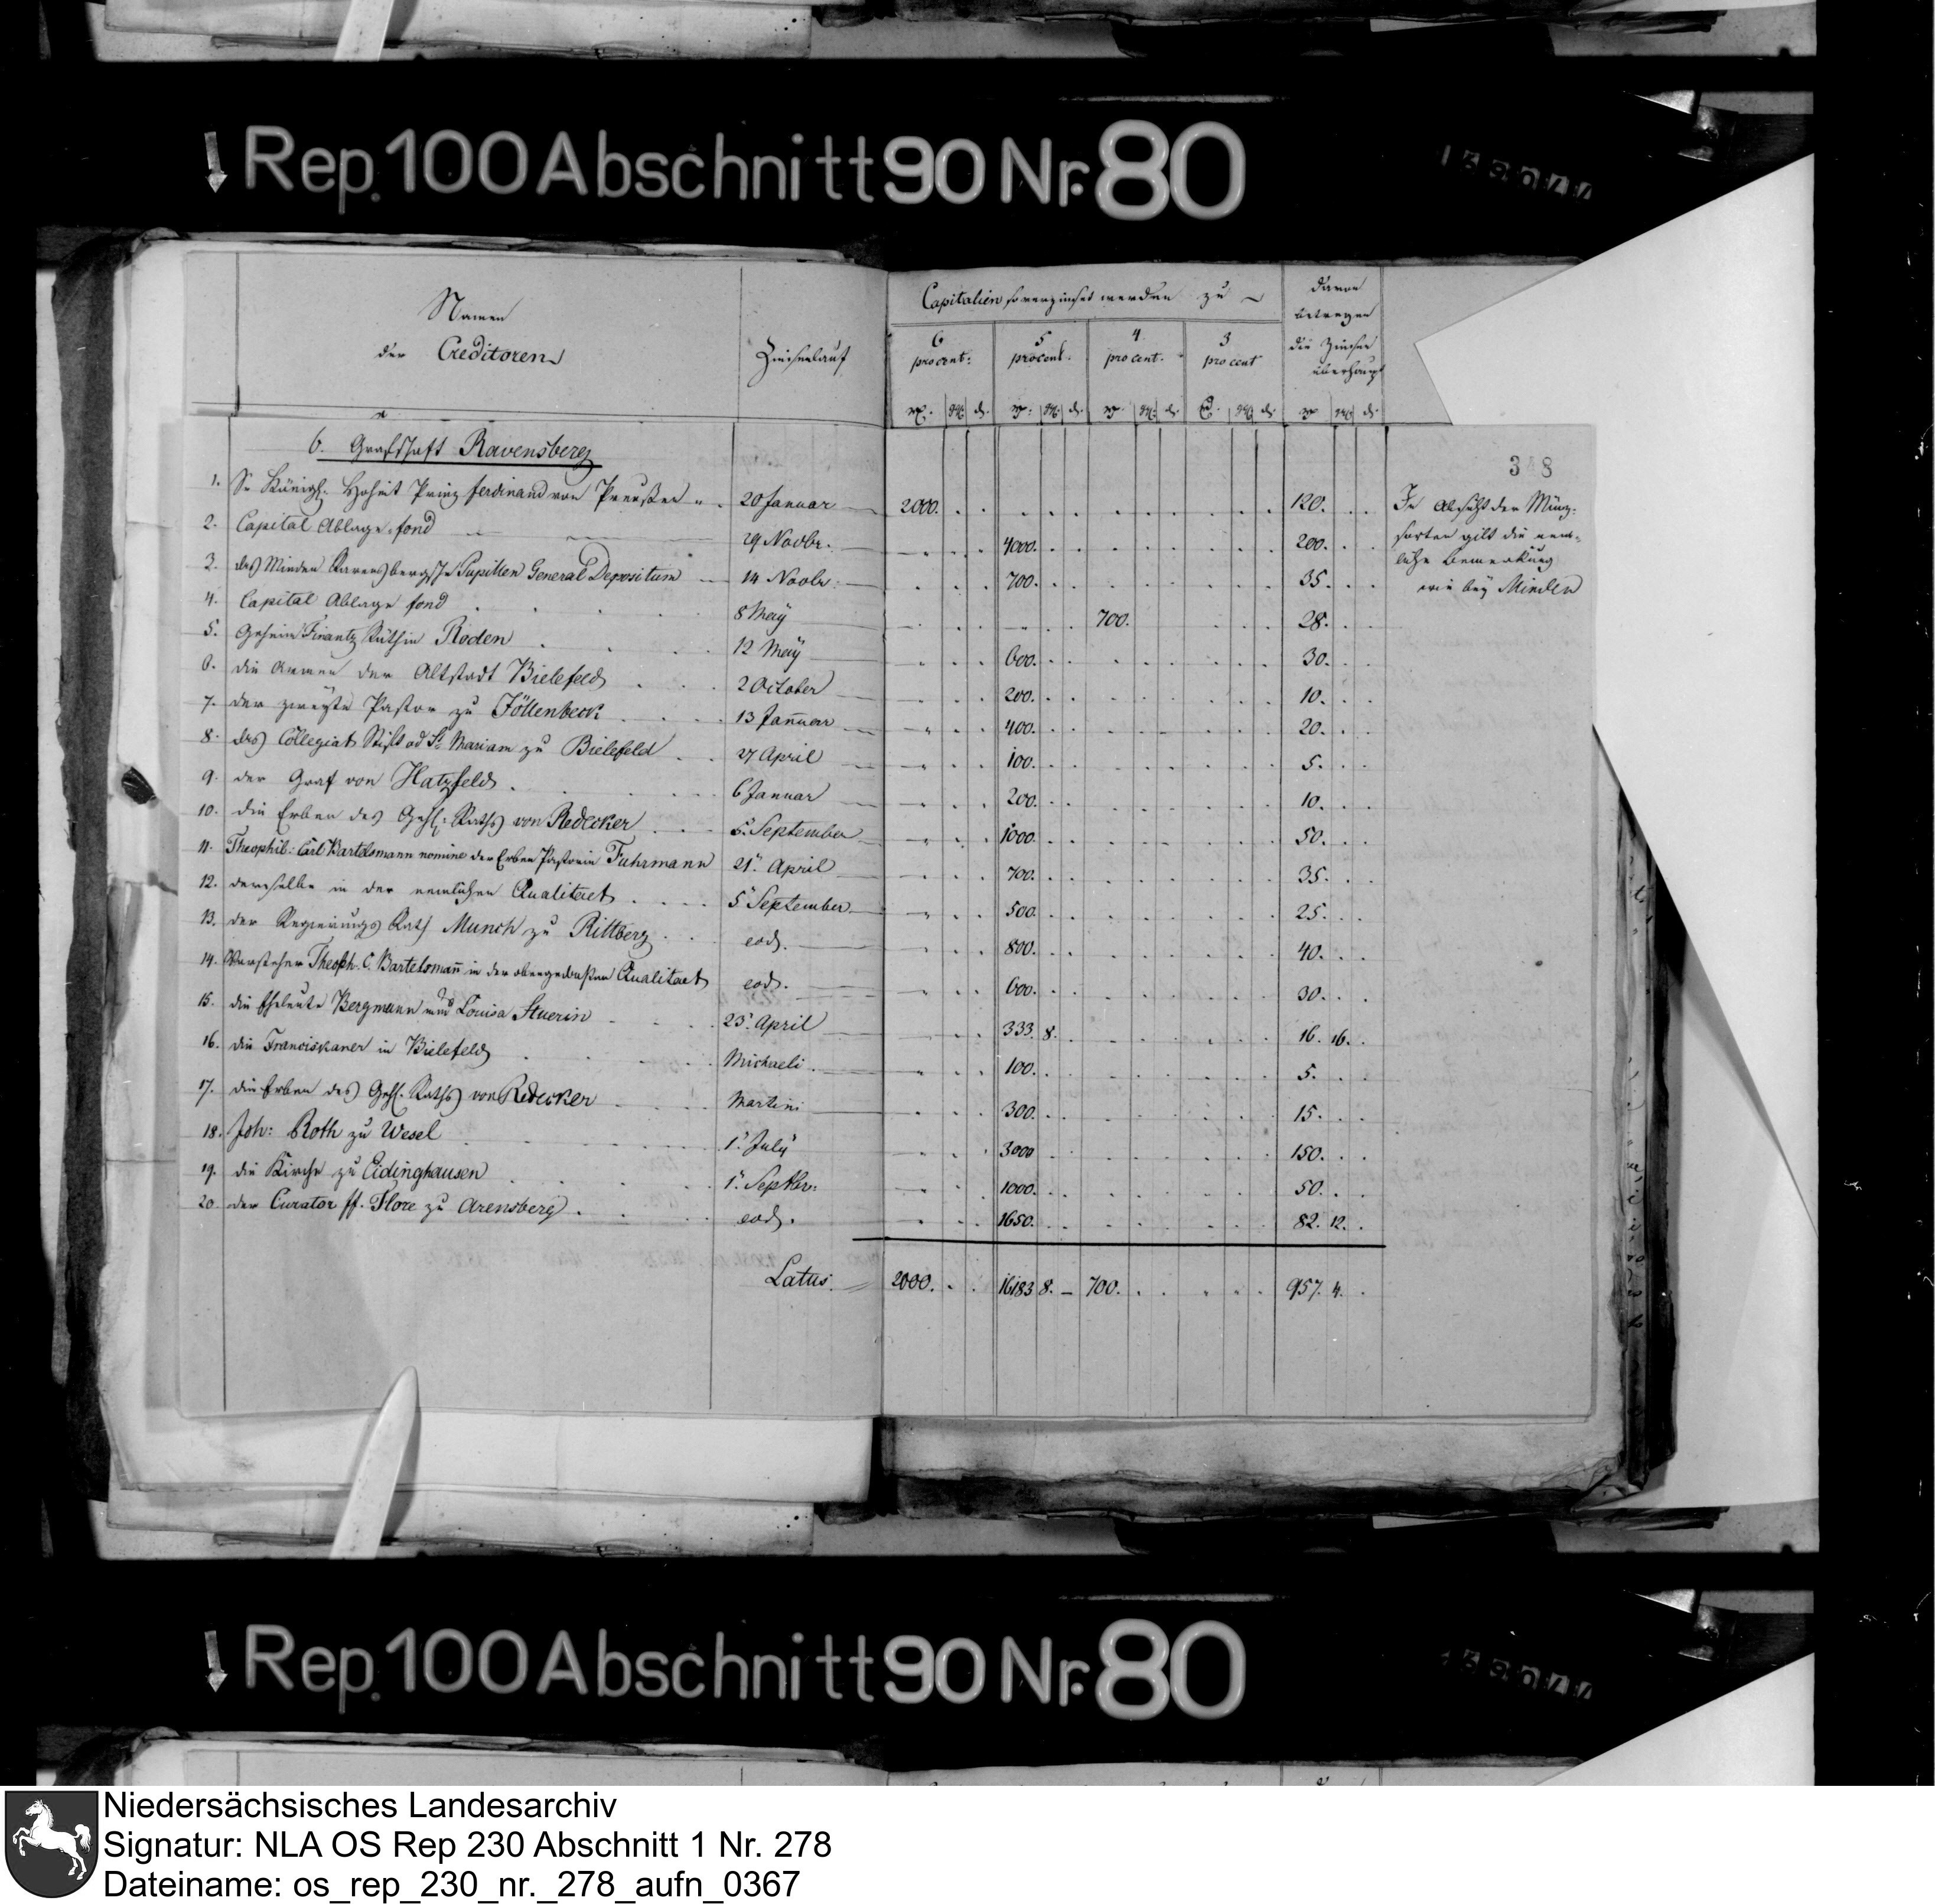 Rep. 100 Abschnitt 90 Nr. 80
Namen
der Creditoren
Zinsenlauf
Capitalien so verzinset werden zu
6 procent:
5 procent:
4 procent.
3 procent
davon
betragen
die Zinsen
überhaupt
6. Grafschaft Ravensberg
348
1. Sr. Königl. Hoheit Prinz Ferdinand von Preussen 20 Januar 2000. 120.
2. Capital Ablage fond 29 Novbr. 4000. 200.
3. das Minden Ravensbergsche Pupillen General Depositum 14 Novbr. 700. 35.
4. Capital Ablage fond 8 May 700. 28.
5. Geheime Finantz Räthin Roden 12 May 600. 30.
6. die Armen der Altstadt Bielefeld 2 October 200. 10.
7. der zweyte Pastor zu Jöllenbeck 13 Januar 400. 20.
8. das Collegiat Stift ad St. Mariam zu Bielefeld 27 April 100. 5.
9. der Graf von Hatzfeld 6 Januar 200. 10.
10. die Erben des Geh. Raths von Redecker 5. September 1000. 50.
11. Theophil: Carl Bartelsmann nomine der Erben Pastorin Fuhrmann 21. April 700. 35.
12. derselbe in der nemlichen Qualitaet 5. September 500. 25.
13. der Regierungs Rath Munch zu Rittberg eod. 800. 40.
14. Vorsteher Theoph. C. Bartelsmann in der obengedachten Qualitaet eod. 600. 30.
15. die Eheleute Bergmann und Louisa Stuerin 23. April 333. 8. 16. 16.
16. die Franciskaner in Bielefeld Michaeli 100. 5.
17. die Erben des Geh. Raths von Redecker Martini 300. 15.
18. Joh: Roth zu Wesel 1. July 3000 150.
19. die Kirche zu Eidinghausen 1. Septbr: 1000. 50.
20 der Curator ff. Flore zu Arensberg eod. 1650. 82. 12.
Latus. 2000. 16183 8. – 700. 957. 4.
In Absicht der Münz-
sorten gilt die nem-
liche Bemerkung
wie bey Minden
Rep. 100 Abschnitt 90 Nr. 80
Niedersächsisches Landesarchiv
Signatur: NLA OS Rep 230 Abschnitt 1 Nr. 278
Dateiname: os_rep_230_nr._278_aufn_0367